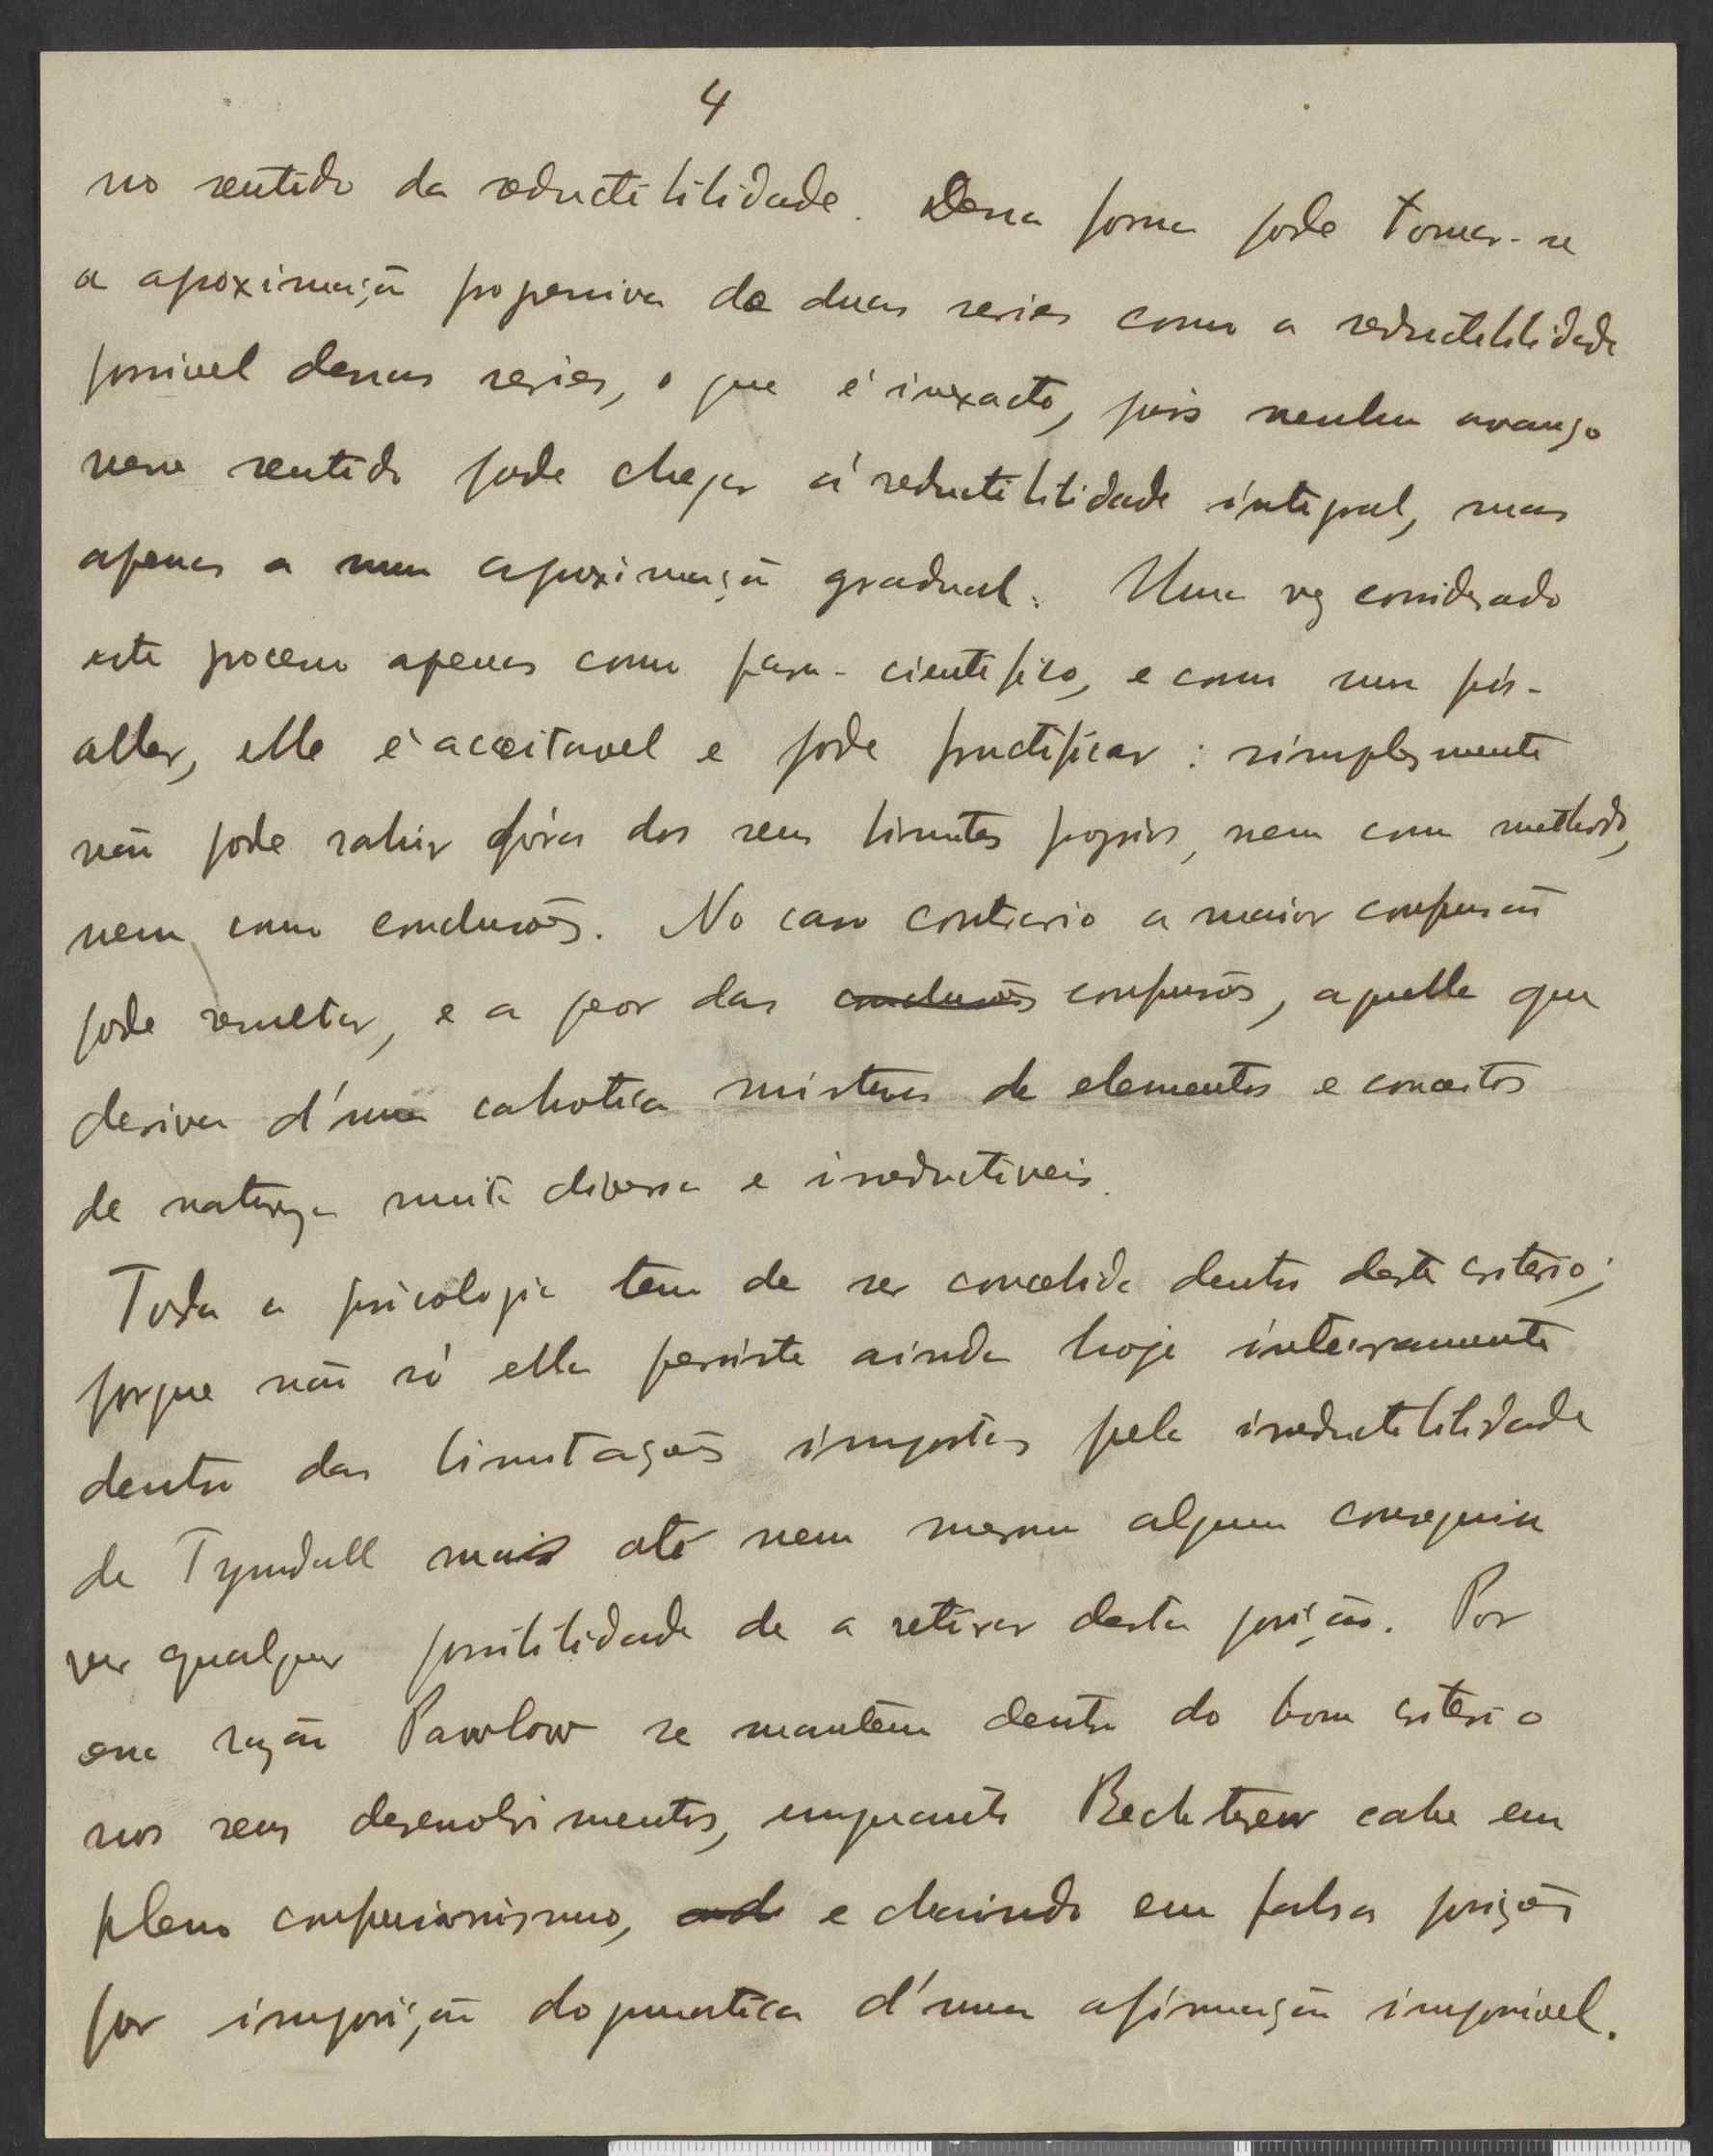 4
no sentido da reductibilidade. Dessa forma pode tomar-se
a aproximação progressiva de duas series como a reductibilidade
possivel dessas series, o que é inexacto, pois nenhum avanço
nesse sentido pode chegar á reductibilidade integral, mas
apenas a uma aproximação gradual. Uma vez considerado
este processo apenas como para-cientifico, e como um pis-
aller, elle é acceitavel e pode fructificar: simplesmente
não pode sahir fóra dos seus limites proprios, nem como methodo,
nem como conclusões. No caso contrario a maior confusão
pode resultar, e a peor das conclusões confusões, aquella que
deriva d'uma cahotica mistura de elementos e conceitos
de natureza muito diversa e irreductiveis.
Toda a psicologia tem de ser concebida dentro deste criterio;
porque não só ella persiste ainda hoje inteiramente
dentro das limitações impostas pela irreductibilidade
de Tyndall mais até nem mesmo alguem conseguiu
ver qualquer possibilidade de a retirar desta posição. Por
essa razão Pawlow se mantem dentro do bom criterio
nos seus desenvolvimentos, emquanto Bechterew cahe em
pleno confusionismo, e cahindo em falsas posições
por imposição dogmatica d'uma afirmação impossivel.